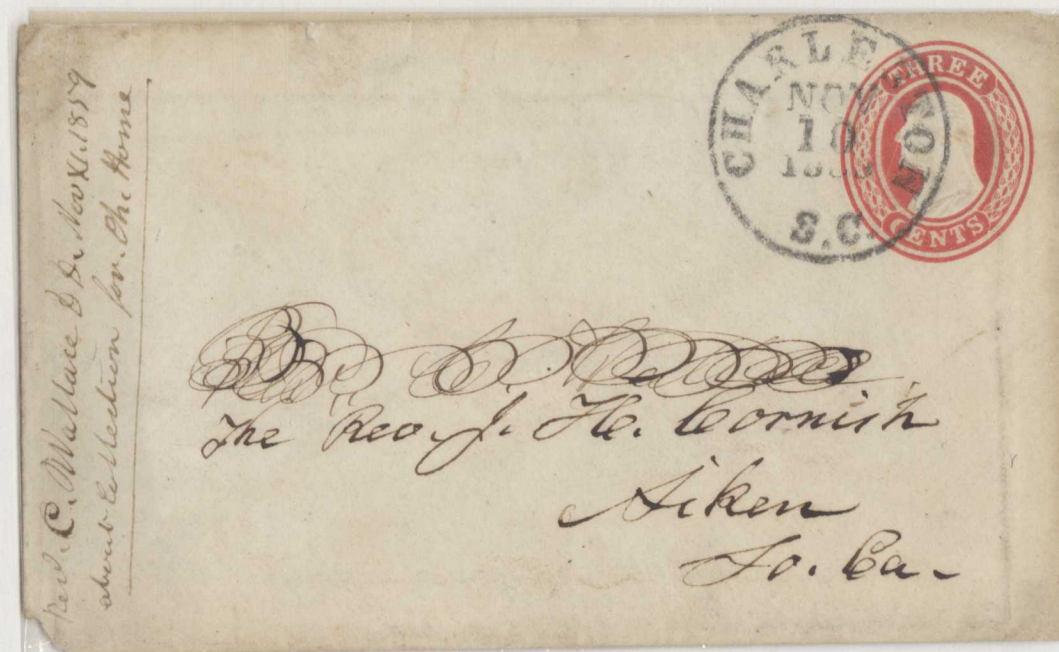 Rev. C. Wallace D D. Nov XI. 1859
about Collection for. Ch: Home
CHARLESTON
NOV
10
S.C.
THREE
CENTS
The Rev. J. H. Cornish
Aiken
So. Ca.